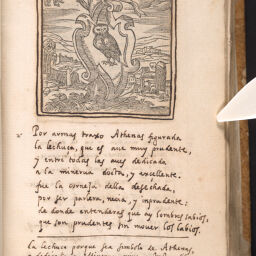 Por armas traxo Athenas figurada
la lechuza, que es aue muy prudente,
y entre todas las aues dedicada
a la minerua docta, y excellente.
fue la corneja della desechada,
por ser parlera, necia, y inprudente:
de donde entenderas que ay hombres sabios,
que son prudentes sin mouer los labios.
la lechuza porque sea simbolo de Athenas,